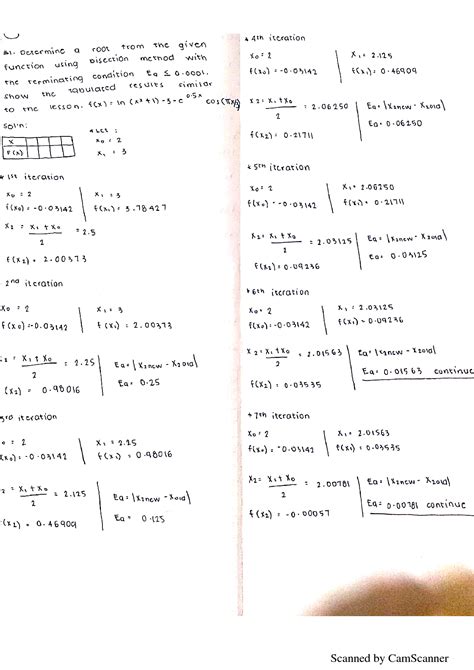 #1. Determine a root from the given
function using bisection method with
the terminating condition Ea ≤ 0.0001.
Show the tabulated results similar
to the lesson.
Sol'n:
X
F(X)
* Let :
x0 = 2
x1 = 3
* 1st iteration
x0 = 2
x1 = 3
f(x0) = -0.03142
f(x1) = 3.78427
x2 = x1 + x0 / 2 = 2.5
f(x2) = 2.00373
2nd iteration
x0 = 2
x1 = 3
f(x0) = -0.03142
f(x1) = 2.00373
= x1 + x0 / 2 = 2.25
Ea = |x2new - x2old|
(x2) = 0.98016
Ea = 0.25
3rd iteration
= 2
x1 = 2.25
(x0) = -0.03142
f(x1) = 0.98016
= x1 + x0 / 2 = 2.125
Ea = |x2new - x2old|
f(x2) = 0.46909
Ea = 0.125
* 4th iteration
x0 = 2
x1 = 2.125
f(x0) = -0.03142
f(x1) = 0.46909
x2 = x1 + x0 / 2 = 2.06250
Ea = |x2new - x2old|
Ea = 0.06250
f(x2) = 0.21711
* 5th iteration
x0 = 2
x1 = 2.06250
f(x0) = -0.03142
f(x1) = 0.21711
x2 = x1 + x0 / 2 = 2.03125
Ea = |x2new - x2old|
Ea = 0.03125
f(x2) = 0.09236
* 6th iteration
x0 = 2
x1 = 2.03125
f(x0) = -0.03142
f(x1) = 0.09236
x2 = x1 + x0 / 2 = 2.01563
Ea = |x2new - x2old|
Ea = 0.01563 continue
f(x2) = 0.03535
* 7th iteration
x0 = 2
x1 = 2.01563
f(x0) = -0.03142
f(x1) = 0.03535
x2 = x1 + x0 / 2 = 2.00781
Ea = |x2new - x2old|
Ea = 0.00781 continue
f(x2) = -0.00057
Scanned by CamScanner